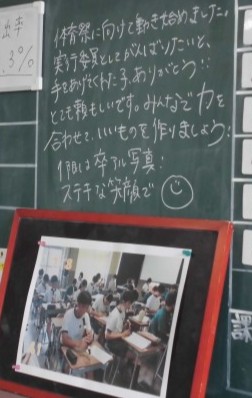 体育祭に向けて動き始めました。
実行委員としてがんばりたいと、
手をあげてくれた子、ありがとう!!
とても頼もしいです。みんなで力を
合わせて、いいものを作りましょう!
1限は卒アル写真!
ステキな笑顔で
出率
.3%